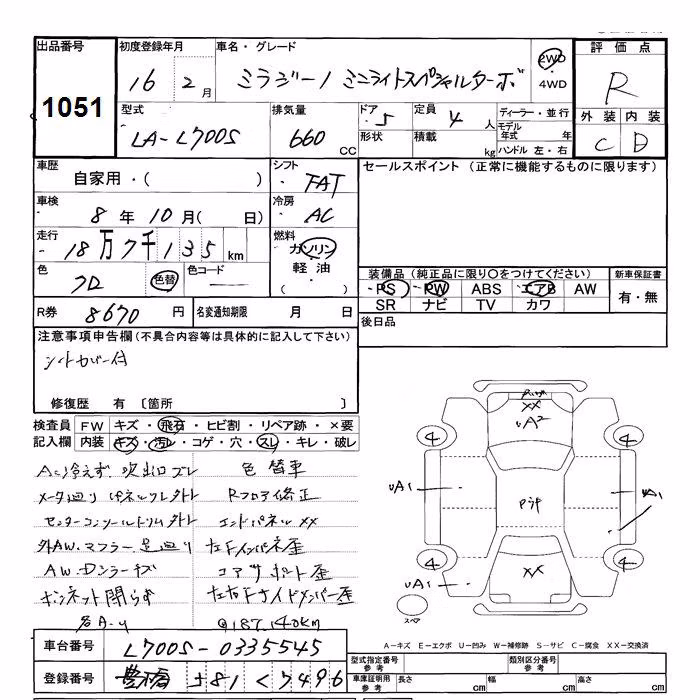 出品番号 初度登録年月 車名・グレード 評価点
1051 16 2月 ミラジーノ ミニライトスペシャルターボ 2WD・4WD R
型式 排気量 ドア・形状 定員 ディーラー・並行 外装 内装
LA-L700S 660CC 5 4人 積載 kg モデル年式 年 ハンドル 左・右 C D
車歴 自家用・( ) シフト FAT セールスポイント (正常に機能するものに限ります)
車検 8年10月( 日) 冷房 AC
走行 18万7千135km 燃料 ガソリン 軽油 ( )
色 クロ 色替 色コード 装備品 (純正品に限り○をつけてください) 新車保証書
PS PW ABS エアB AW 有・無
SR ナビ TV カワ
R券 8670円 名変通知期限 月 日 後日品
注意事項申告欄 (不具合内容等は具体的に記入して下さい)
シートカバー付
修復歴 有 〔箇所 〕
検査員記入欄 FW キズ・飛石・ヒビ割・リペア跡・×要
内装 キズ・汚レ・コゲ・穴・スレ・キレ・破レ
Aに冷えず 吹出口ズレ 色替車
メータ廻りパネルツメ外レ Rフロア修正
センターコンソールトリム外レ エンドパネルXX
外AW.マフラー.足廻り 左Fインパネ歪
AW.Dシラーキズ コアサポート歪
ボンネット閉らず 左右Fサイドメンバー歪
187,140km
XX
UA2
4 4
UA1 Pシナ UA1
4 4
UA1 XX
スペア
A-キズ E-エクボ U-凹み W-補修跡 S-サビ C-腐食 XX-交換済
車台番号 L700S-0335545
登録番号 豊橋 581 く 7496
型式指定番号 参考 類別区分番号 参考
車庫証明用 参考 長さ cm 幅 cm 高さ cm